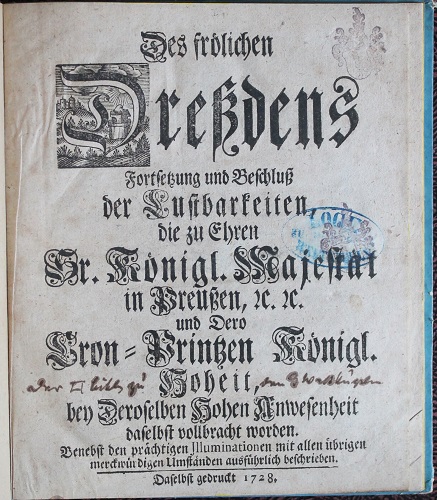 Des frölichen
Dreßdens
Fortsetzung und Beschluß
der Lustbarkeiten
die zu Ehren
Sr. Königl. Majestät
in Preußen, ꝛc. ꝛc.
und Dero
Cron-Printzen Königl.
Hoheit,
bey Deroselben Hohen Anwesenheit
daselbst vollbracht worden.
Benebst den prächtigen Illuminationen mit allen übrigen
merckwürdigen Umständen ausführlich beschrieben.
Daselbst gedruckt 1728.